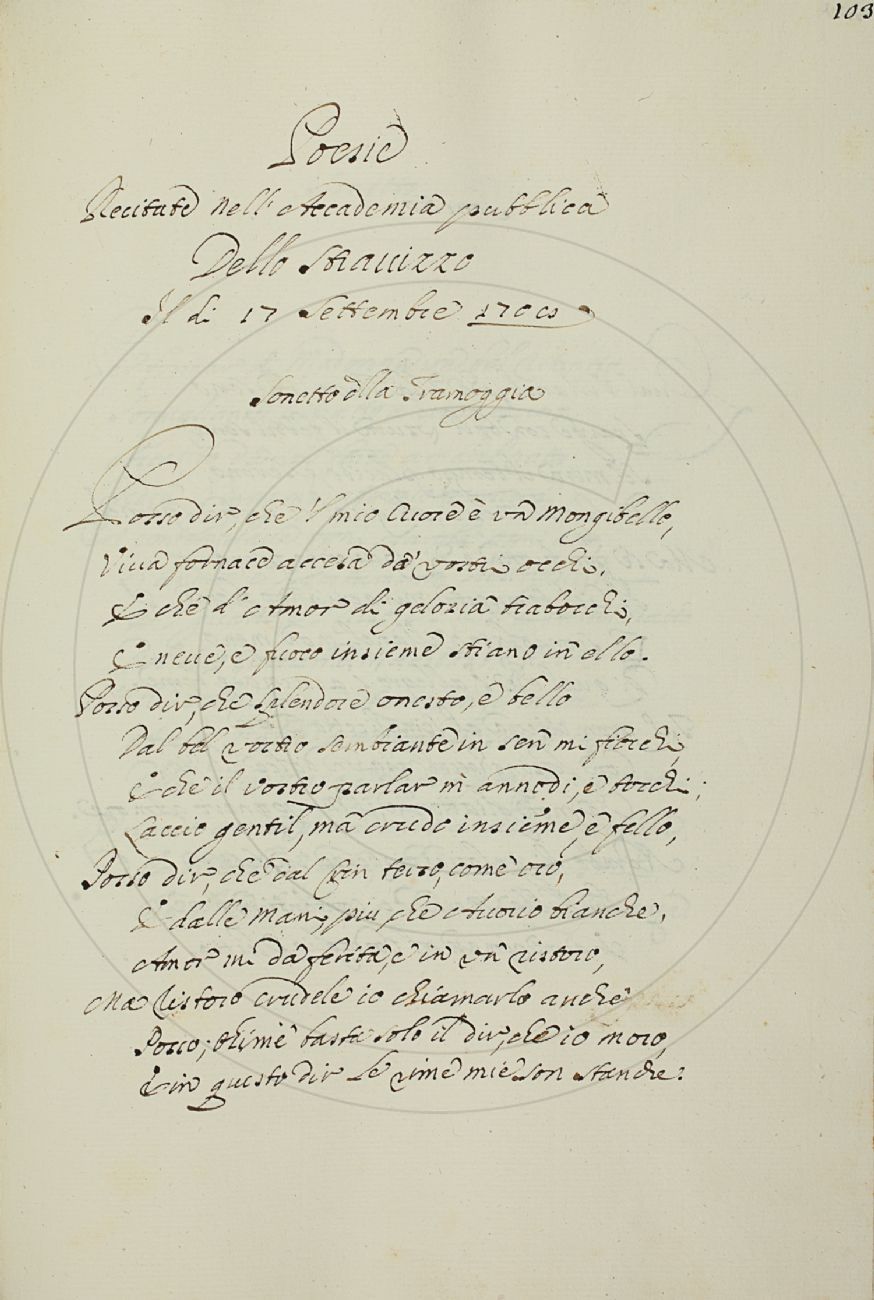 103
Poesie
Recitate nell'Accademia pubblica
Dello Stravizzo
Il di 17 Settembre
Sonetto alla Tramoggia
Posso dir, che 'l mio Cuore è un Mongibello,
Viva fornace accesa da' vostri occhi,
E che d'Amor di gelosia trabocchi,
E neve, e fuoco insieme stiano in ello.
Posso dir, che splendore onesto, e bello
Dal bel vostro sembiante in sen mi fiocchi,
E che il vostro parlar m'annodi, e tocchi;
Laccio gentil, ma crudo insieme, e fello,
Posso dir, che dal Crin terso, come oro,
E dalle mani, più che Avorio bianche,
Amor mi dà ferita, e in un ristoro,
Ma ristoro crudele io chiamarlo anche
Posso; ohimè basta solo il dir, che io moro,
E in questo dir le rime mie son stanche.